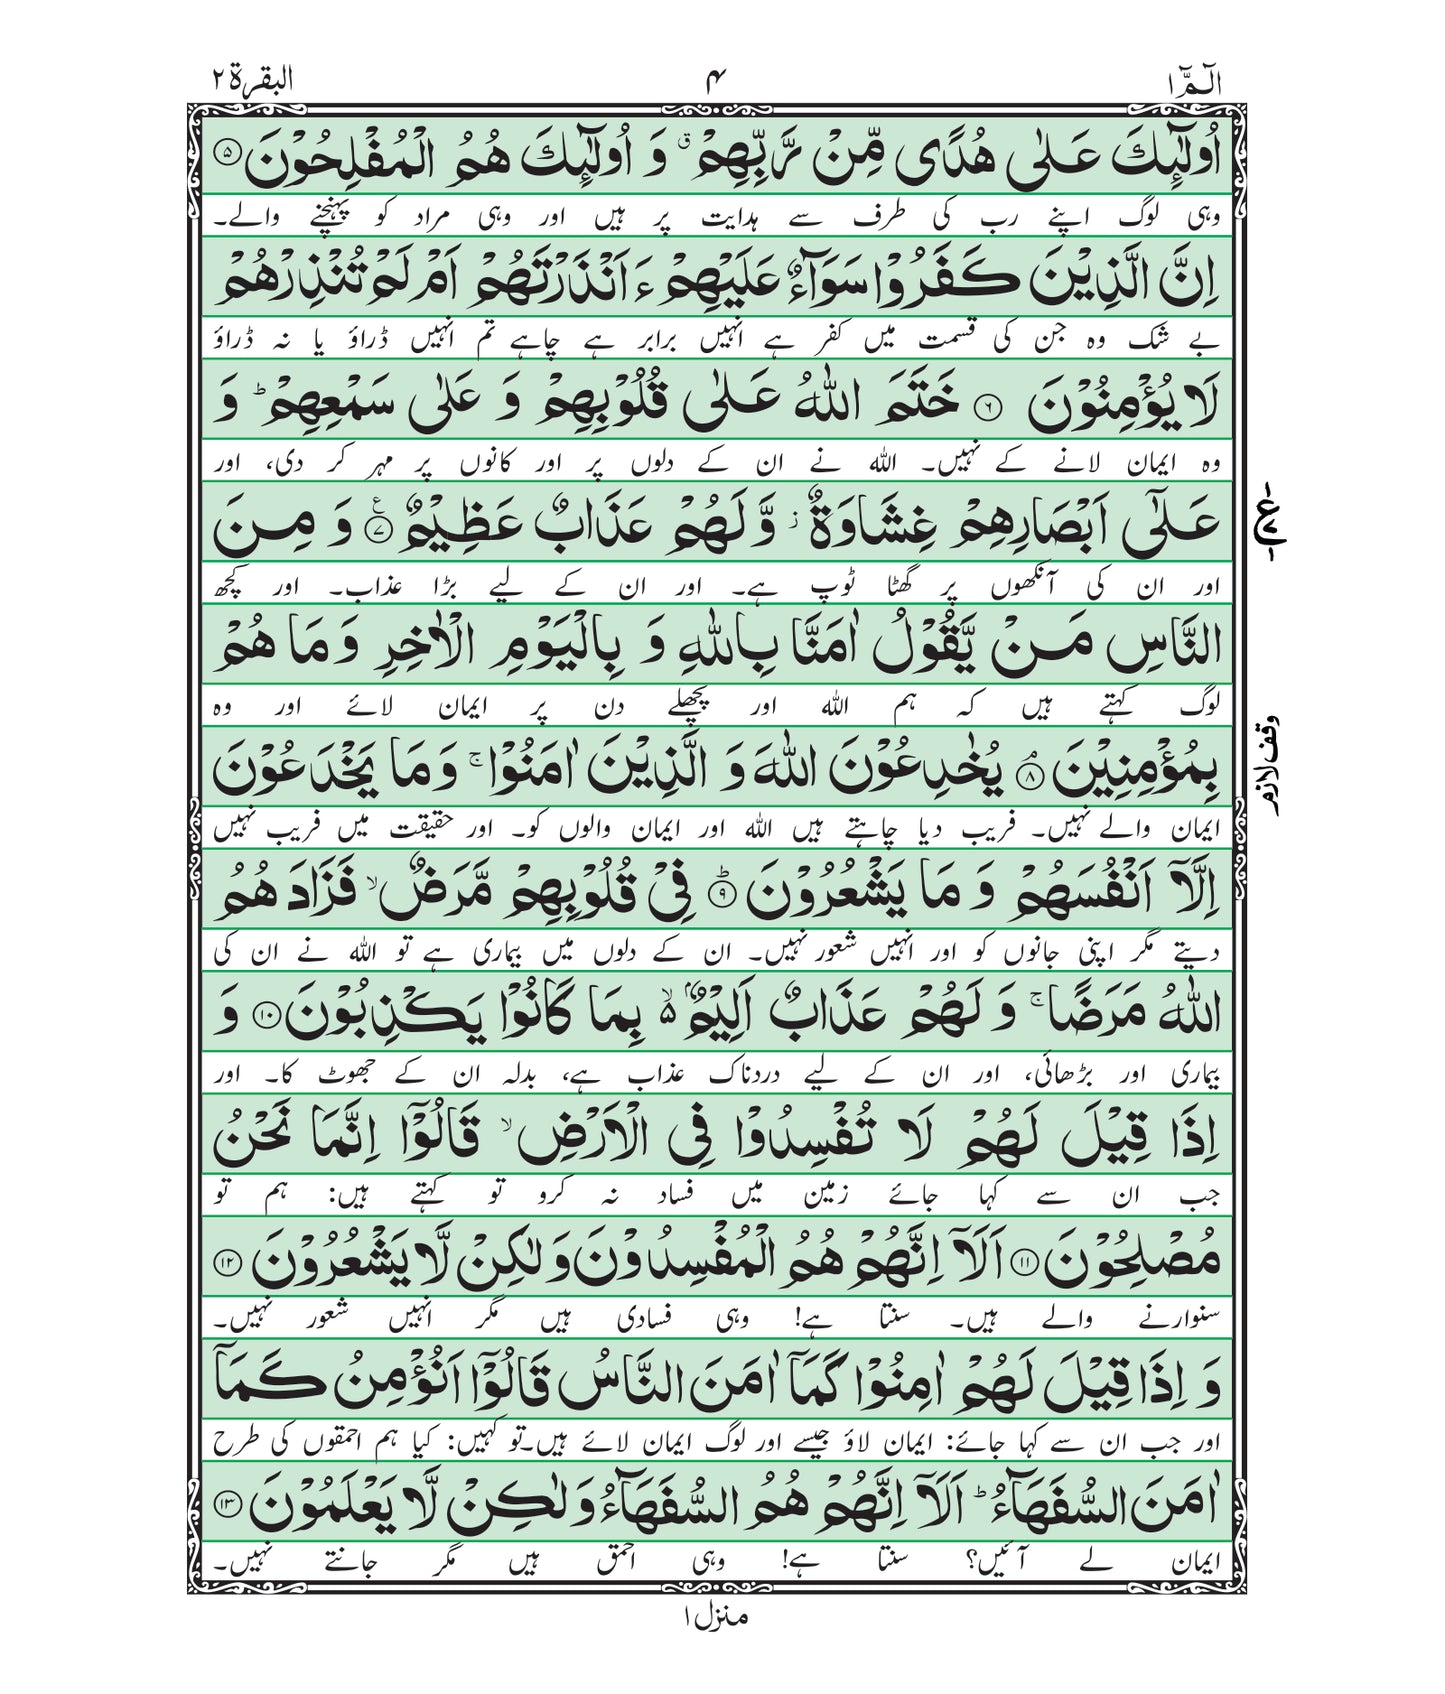 الٓمّٓ ۱
۴
البقرة ۲
اُولٰٓئِكَ عَلٰى هُدًى مِّنْ رَّبِّهِمْ ۗ وَ اُولٰٓئِكَ هُمُ الْمُفْلِحُوْنَ ۵
وہی لوگ اپنے رب کی طرف سے ہدایت پر ہیں اور وہی مراد کو پہنچنے والے۔
اِنَّ الَّذِيْنَ كَفَرُوْا سَوَآءٌ عَلَيْهِمْ ءَاَنْذَرْتَهُمْ اَمْ لَمْ تُنْذِرْهُمْ
بے شک وہ جن کی قسمت میں کفر ہے انہیں برابر ہے چاہے تم انہیں ڈراؤ یا نہ ڈراؤ
لَا يُؤْمِنُوْنَ ۶ خَتَمَ اللّٰهُ عَلٰى قُلُوْبِهِمْ وَ عَلٰى سَمْعِهِمْ ؕ وَ
وہ ایمان لانے کے نہیں۔ اللہ نے ان کے دلوں پر اور کانوں پر مہر کر دی، اور
عَلٰٓى اَبْصَارِهِمْ غِشَاوَةٌ ز وَّ لَهُمْ عَذَابٌ عَظِيْمٌ ۷ ع وَ مِنَ
اور ان کی آنکھوں پر گھٹا ٹوپ ہے۔ اور ان کے لیے بڑا عذاب۔ اور کچھ
النَّاسِ مَنْ يَّقُوْلُ اٰمَنَّا بِاللّٰهِ وَ بِالْيَوْمِ الْاٰخِرِ وَ مَا هُمْ
لوگ کہتے ہیں کہ ہم اللہ اور پچھلے دن پر ایمان لائے اور وہ
وقف لازم
بِمُؤْمِنِيْنَ ۸ۘ يُخٰدِعُوْنَ اللّٰهَ وَ الَّذِيْنَ اٰمَنُوْا ۚ وَ مَا يَخْدَعُوْنَ
ایمان والے نہیں۔ فریب دیا چاہتے ہیں اللہ اور ایمان والوں کو۔ اور حقیقت میں فریب نہیں
اِلَّآ اَنْفُسَهُمْ وَ مَا يَشْعُرُوْنَ ۹ؕ فِيْ قُلُوْبِهِمْ مَّرَضٌ ۙ فَزَادَهُمُ
دیتے مگر اپنی جانوں کو اور انہیں شعور نہیں۔ ان کے دلوں میں بیماری ہے تو اللہ نے ان کی
اللّٰهُ مَرَضًا ۚ وَ لَهُمْ عَذَابٌ اَلِيْمٌۢ ۙ۬ بِمَا كَانُوْا يَكْذِبُوْنَ ۱۰ وَ
بیماری اور بڑھائی، اور ان کے لیے دردناک عذاب ہے، بدلہ ان کے جھوٹ کا۔ اور
اِذَا قِيْلَ لَهُمْ لَا تُفْسِدُوْا فِى الْاَرْضِ ۙ قَالُوْٓا اِنَّمَا نَحْنُ
جب ان سے کہا جائے زمین میں فساد نہ کرو تو کہتے ہیں: ہم تو
مُصْلِحُوْنَ ۱۱ اَلَآ اِنَّهُمْ هُمُ الْمُفْسِدُوْنَ وَ لٰكِنْ لَّا يَشْعُرُوْنَ ۱۲
سنوارنے والے ہیں۔ سنتا ہے! وہی فسادی ہیں مگر انہیں شعور نہیں۔
وَ اِذَا قِيْلَ لَهُمْ اٰمِنُوْا كَمَآ اٰمَنَ النَّاسُ قَالُوْٓا اَنُؤْمِنُ كَمَآ
اور جب ان سے کہا جائے: ایمان لاؤ جیسے اور لوگ ایمان لائے ہیں۔ تو کہیں: کیا ہم احمقوں کی طرح
اٰمَنَ السُّفَهَآءُ ؕ اَلَآ اِنَّهُمْ هُمُ السُّفَهَآءُ وَ لٰكِنْ لَّا يَعْلَمُوْنَ ۱۳
ایمان لے آئیں؟ سنتا ہے! وہی احمق ہیں مگر جانتے نہیں۔
منزل ۱